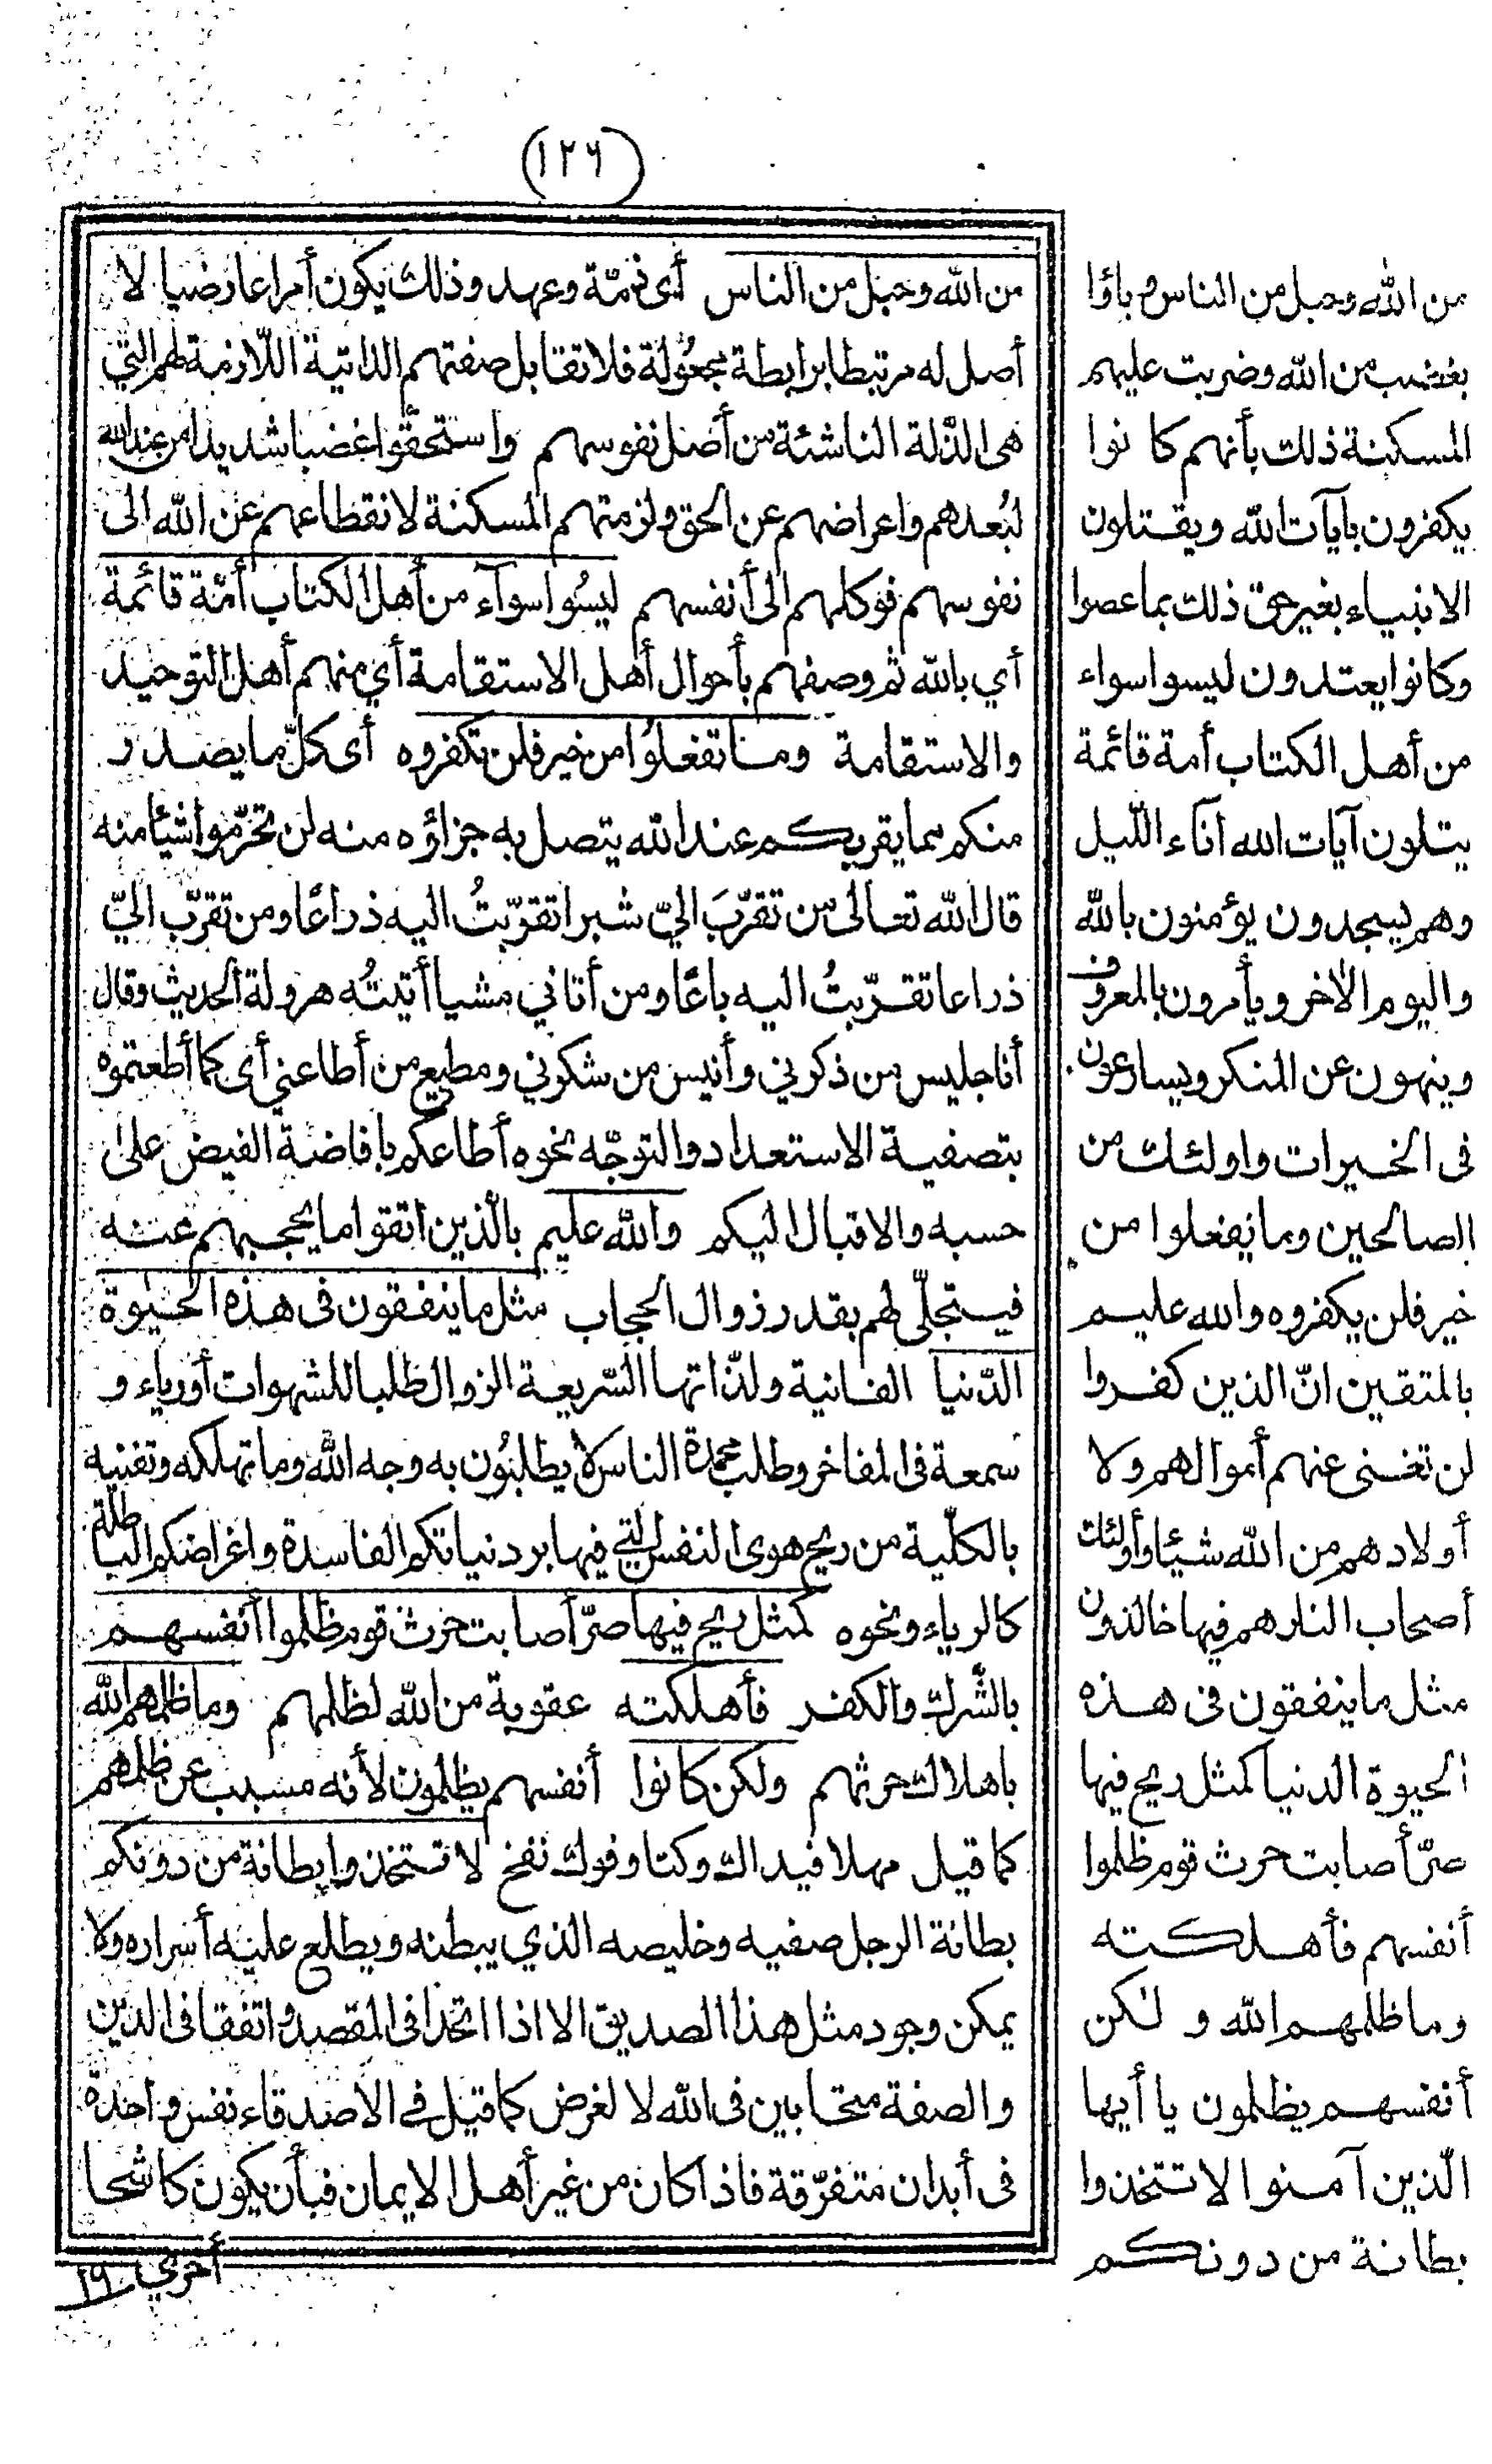 (١٢٦)
من الله وحبل من الناس أى ذمّة وعهد وذلك يكون أمرا عارضيا لا
أصل له مرتبطا برابطة مجعُولة فلا تقابل صفتهم الذاتية اللّازمة لهم التي
هى الذّلة الناشئة من أصل نفوسهم واستحقّوا غضبا شديدا من عند الله
لبُعدهم واعراضهم عن الحق ولزمتهم المسكنة لانقطاعهم عن الله الى
نفوسهم فوكلهم الى أنفسهم ليسُوا سوآء من أهل الكتاب أمّة قائمة
أي بالله ثم وصفهم بأحوال أهل الاستقامة أي منهم أهل التوحيد
والاستقامة وما تفعلوُا من خير فلن تكفروه أى كلّ ما يصدر
منكم مما يقربكم عند الله يتصل به جزاؤه منه لن تحرّموا شيئا منه
قال الله تعالى من تقرّبَ اليّ شبرا تقرّبتُ اليه ذراعًا ومن تقرّب اليّ
ذراعا تقرّبتُ اليه باعًا ومن أتاني مشيا أتيتُه هرولة الحديث وقال
أنا جليس من ذكرني وأنيس من شكرني ومطيع من أطاعني أى كما أطعتموه
بتصفية الاستعداد والتوجّه نحوه أطاعكم بافاضة الفيض على
حسبه والاقبال اليكم والله عليم بالّذين اتقوا ما يحجبهم عنه
فيتجلّى لهم بقدر زوال الحجاب مثل ما ينفقون فى هذه الحيٰوة
الدّنيا الفانية ولذّاتها السّريعة الزوال طلبا للشهوات أو رياء و
سمعة فى المفاخر وطلب محمدة الناس لا يطلبُون به وجه الله وما تهلكه وتفنيه
بالكلّية من ريح هوى النفس التي فيها برد نياتكم الفاسدة واغراضكم الباطلة
كالرياء ونحوه كمثل ريح فيها صرّ أصابت حرث قوم ظلموا أنفسهم
بالشّرك والكفر فأهلكته عقوبة من الله لظلمهم وما ظلمهم الله
باهلاك حرثهم ولكن كانوا أنفسهم يظلمون لأنه مسبب عن ظلمهم
كما قيل مهلا فيداك وكتا وفوك نفخ لا تتخذوا بطانة من دونكم
بطانة الرجل صفيه وخليصه الذي يبطنه ويطلع عليه أسراره ولا
يمكن وجود مثل هذا الصديق الا اذا اتحدا فى المقصد واتفقا فى الدين
والصفة متحابين فى الله لا لغرض كما قيل في الأصدقاء نفس واحدة
فى أبدان متفرّقة فاذا كان من غير أهل الايمان فبأن يكون كاشحا
أحرى
من الله وحبل من الناس وباؤا
بغضب من الله وضربت عليهم
المسكنة ذلك بأنهم كانوا
يكفرون بايآت الله ويقتلون
الانبياء بغير حق ذلك بما عصوا
وكانوا يعتدون ليسوا سواء
من أهل الكتاب أمة قائمة
يتلون آيات الله آناء اللّيل
وهم يسجدون يؤمنون بالله
واليوم الأخر ويأمرون بالمعروف
وينهون عن المنكر ويسارعون
فى الخيرات واولئك من
الصالحين وما يفعلوا من
خير فلن يكفروه والله عليم
بالمتقين انّ الذين كفروا
لن تغنى عنهم أموالهم ولا
أولادهم من الله شيئا وأولئك
أصحاب النار هم فيها خالدون
مثل ما ينفقون فى هذه
الحيوة الدنيا كمثل ريح فيها
صرّ أصابت حرث قوم ظلموا
أنفسهم فأهلكته
وما ظلمهم الله و لكن
أنفسهم يظلمون يا أيها
الّذين آمنوا لا تتخذوا
بطانة من دونكم